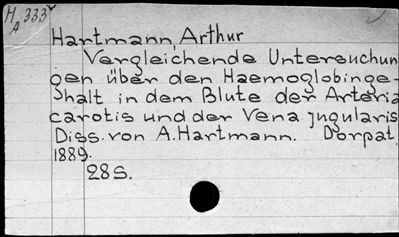 H 333
A
Hartmann, Arthur
Vergleichende Untersuchun
gen über den Haemoglobinge-
halt in dem Blute der Arteria
carotis und der Vena jugularis
Diss. von A. Hartmann. Dorpat,
1889.
28 S.